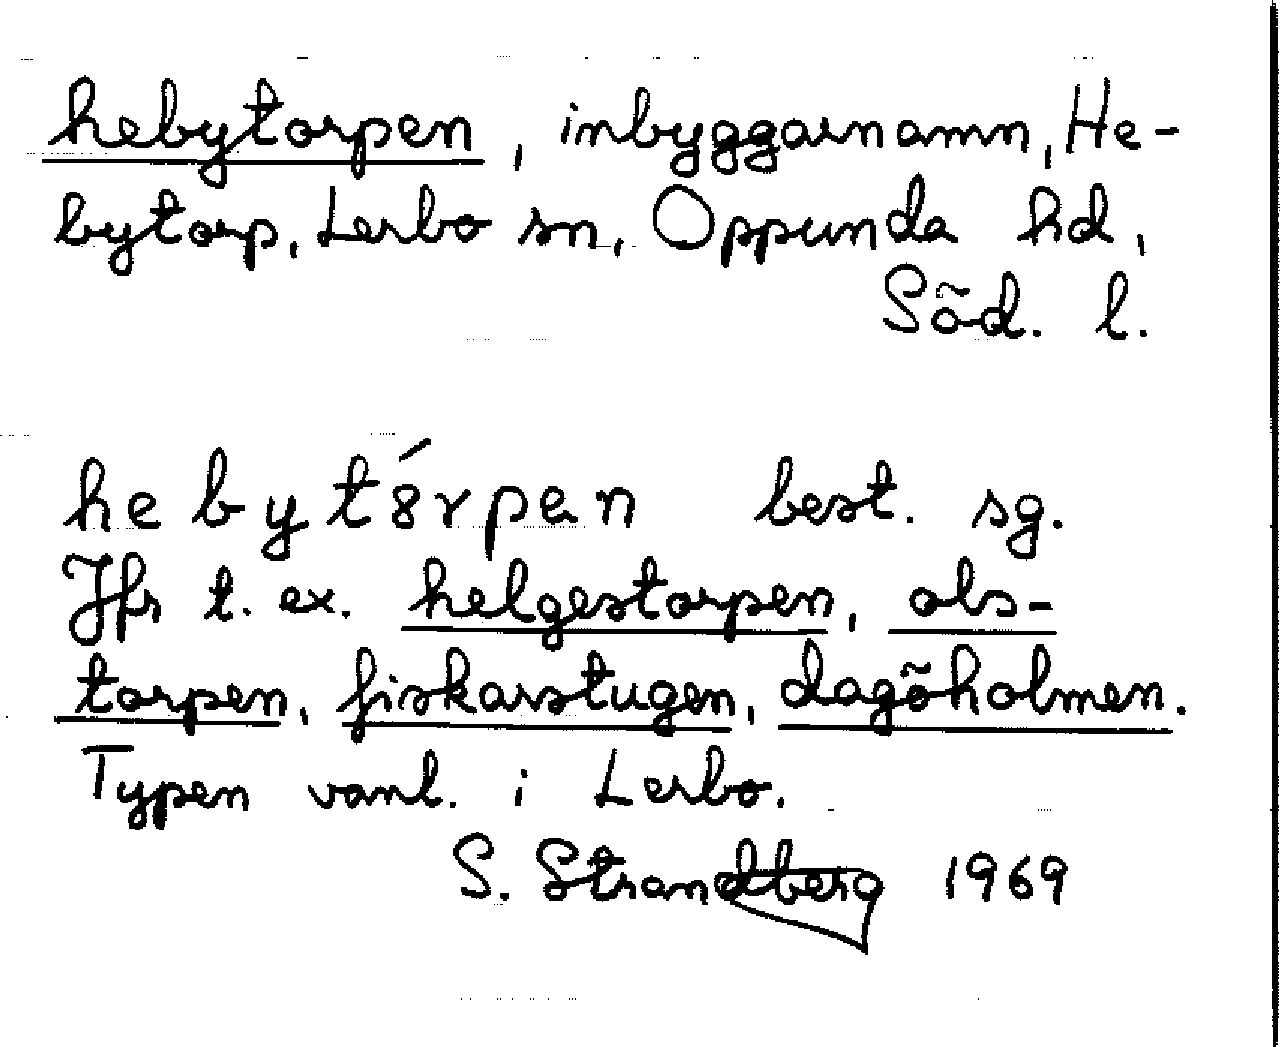 hebytorpen, inbyggarnamn, He-
bytorp, Lerbo sn, Oppunda hd,
Söd. l.
hebytȣ́rpen best. sg.
Jfr t. ex. helgestorpen, ols-
torpen, fiskarstugen, dagöholmen.
Typen vanl. i Lerbo.
S. Strandberg 1969